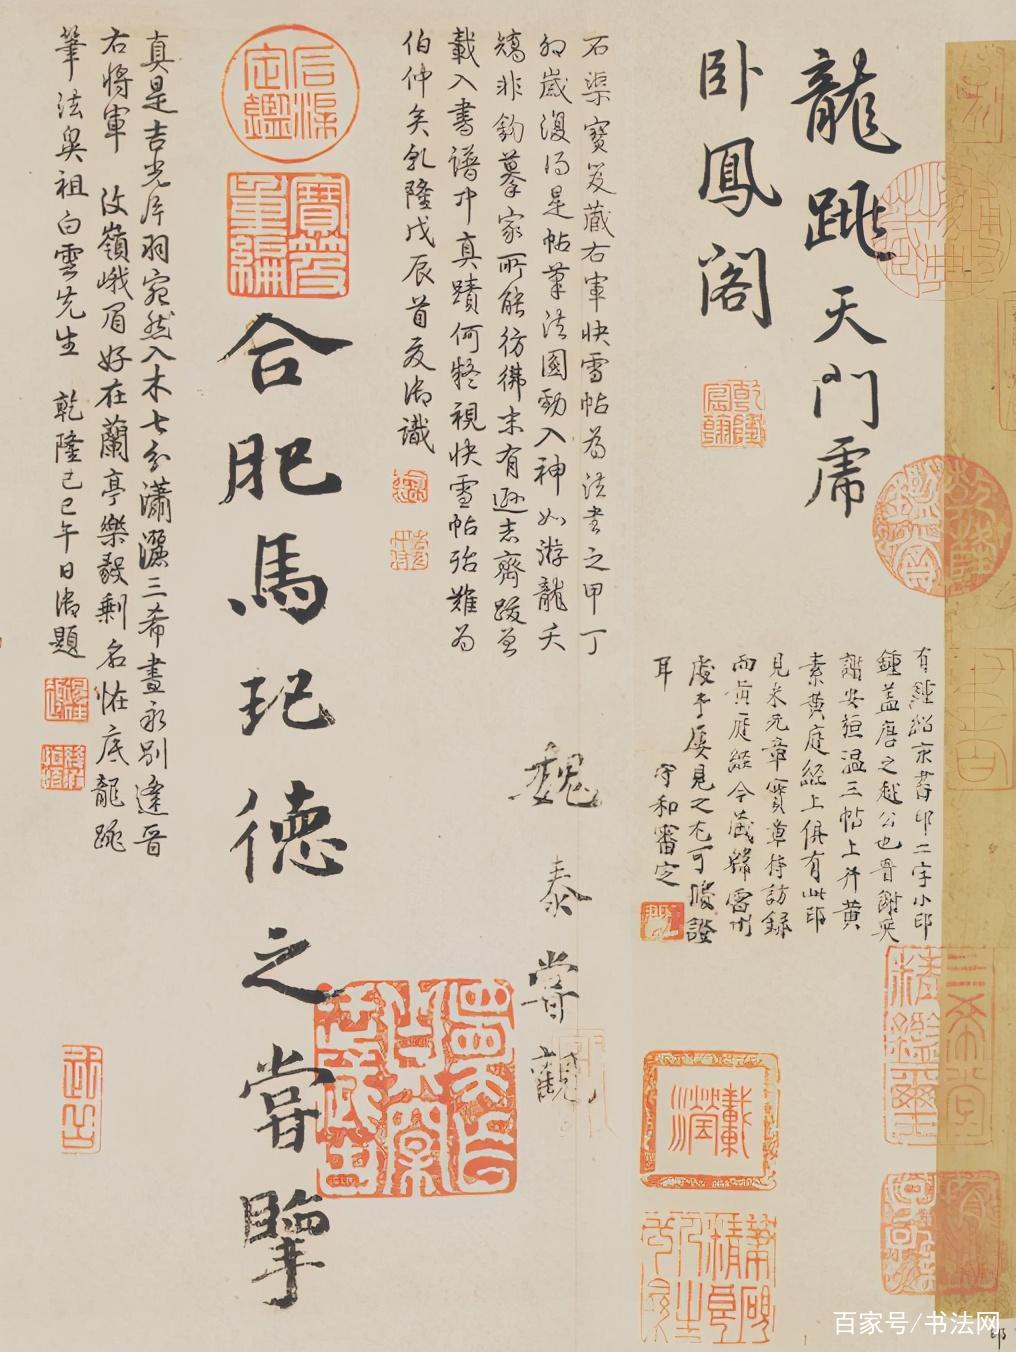 龍跳天門虎
卧鳳閣
乾隆宸翰
有鍾紹京書印二字小印
鍾蓋唐之越公也晉謝奕
謝安桓温三帖上并黄
素黄庭經上俱有此印
見米元章寶章待訪録
而黄庭經今藏歸雲間
處予屢見之尤可牋證
耳 守和審定
石渠寶笈藏右軍快雪帖為法書之甲丁
卯歲復得是帖筆法圓勁入神如游龍夭
矯非鈎摹家所能彷彿末有遜志齋跋曾
載入書譜中真蹟何疑視快雪帖殆難為
伯仲矣乾隆戊辰首夏御識
魏泰嘗觀
石渠定鑑
寶笈重編
合肥馬玘德之嘗覽
真是吉光片羽宛然入木七分瀟灑三希晝永別逢晉
右將軍 汶嶺峨眉好在蘭亭樂毅剩名恠底龍跳
筆法奥祖白雲先生 乾隆己巳午日御題
乾隆鑑賞
三希堂精鑑璽
宜子孫
百家号/书法网